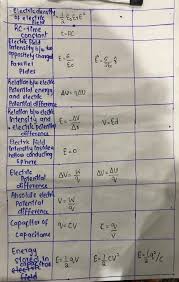 Electric density
of electric
field
= ½ ε₀εᵣE²
RC-time
constant
τ=RC
Electric Field
Intensity b/w two
oppositely charged
Parallel
Plates
E = σ/ε₀
E = σ/ε₀ r̂
Relation b/w electric
Potential energy
and electric
Potential difference
ΔU = qΔV
Relation b/w electric
Intensity and
electric potential
difference
E = -ΔV/Δr
V=Ed
Electric field
Intensity inside a
hollow conducting
sphere
E=0
Electric
Potential
difference
ΔV = W/q
Absolute electric
Potential
difference
V = W/q
Capacitor of
Capacitance
q = CV
C = q/V
Energy
stored in
capacitor
electric
field
E = ½ qV
E = ½ CV²
E = ½ q²/C